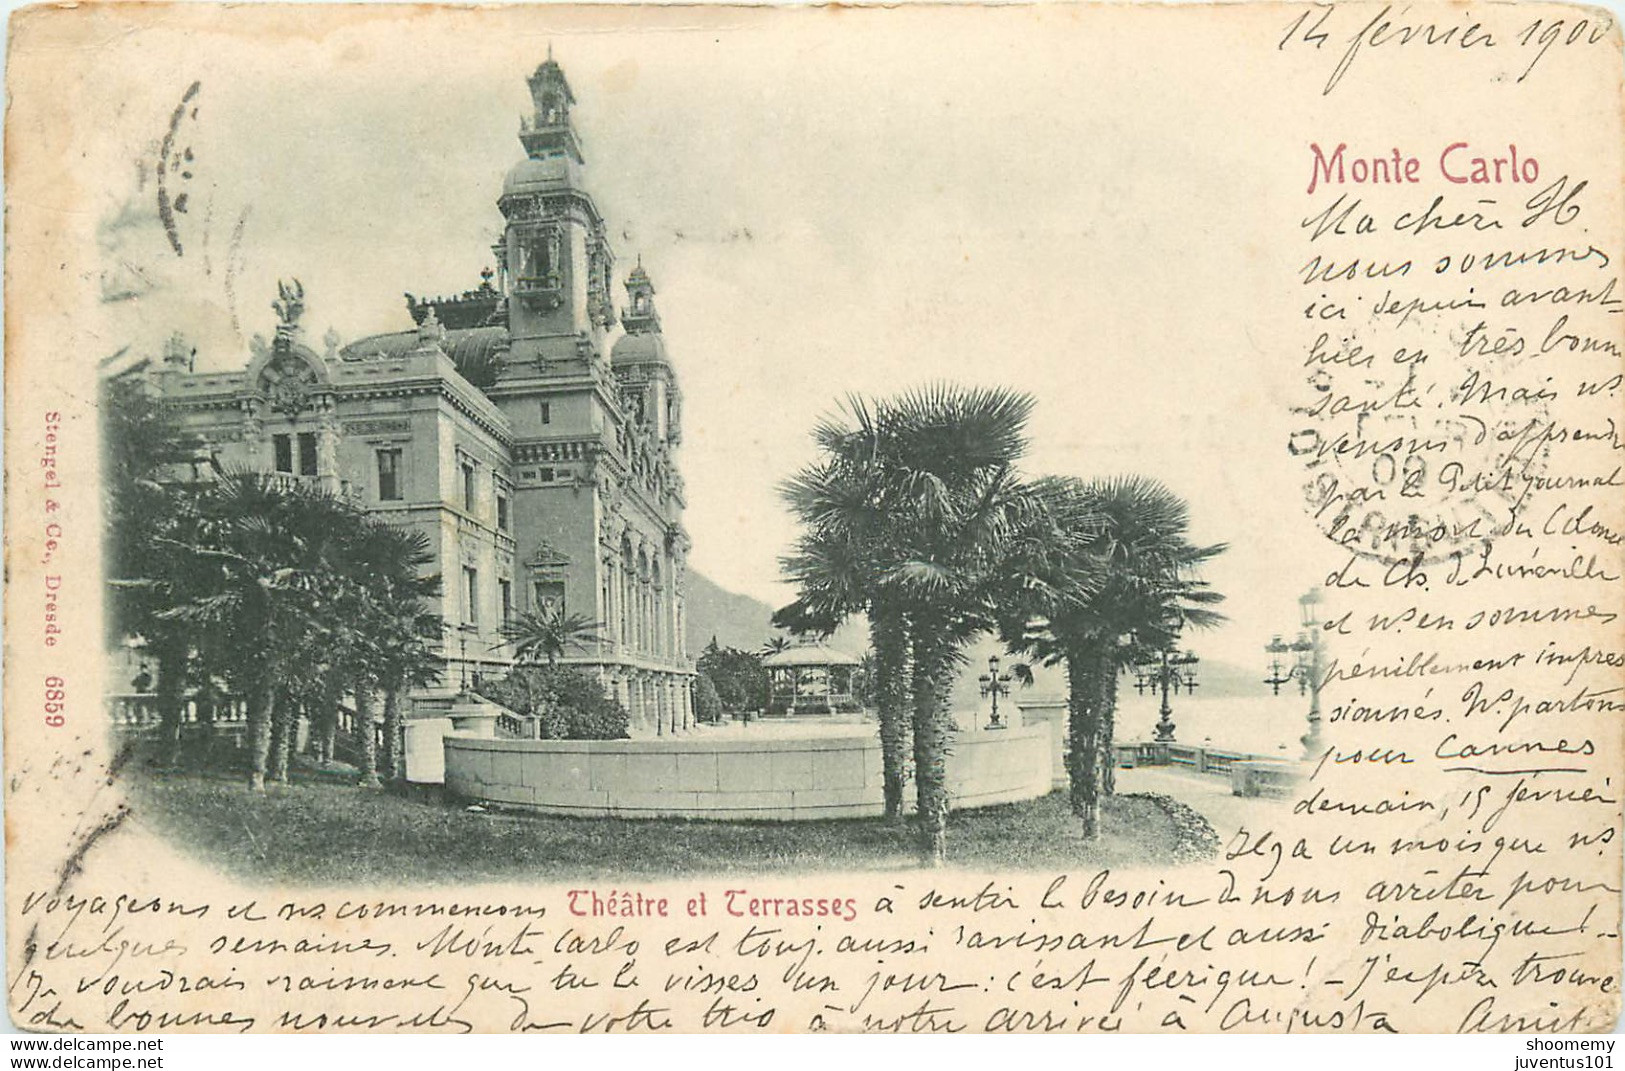 14 février 1900
Monte Carlo
Ma chère H.
nous sommes
ici depuis avant-
hier en très bonne
santé. Mais ns.
venons d'apprendre
par le Petit Journal
la mort du Colonel
de Ch. de Lunéville
et ns. en sommes
péniblement impres
sionnés. Ns. partons
pour Cannes
demain, 15 février
Il y a un mois que ns.
voyageons et ns. commençons Théâtre et Terrasses à sentir le besoin de nous arrêter pour
quelques semaines. Monte Carlo est touj. aussi ravissant et aussi diabolique! -
Je voudrais vraiment que tu le visses un jour: c'est féerique! - J'espère trouver
de bonnes nouvelles de votre trio à notre arrivée à Augusta Amitiés
Stengel & Co., Dresde 6859
www.delcampe.net
shoomemy
www.delcampe.net
juventus101